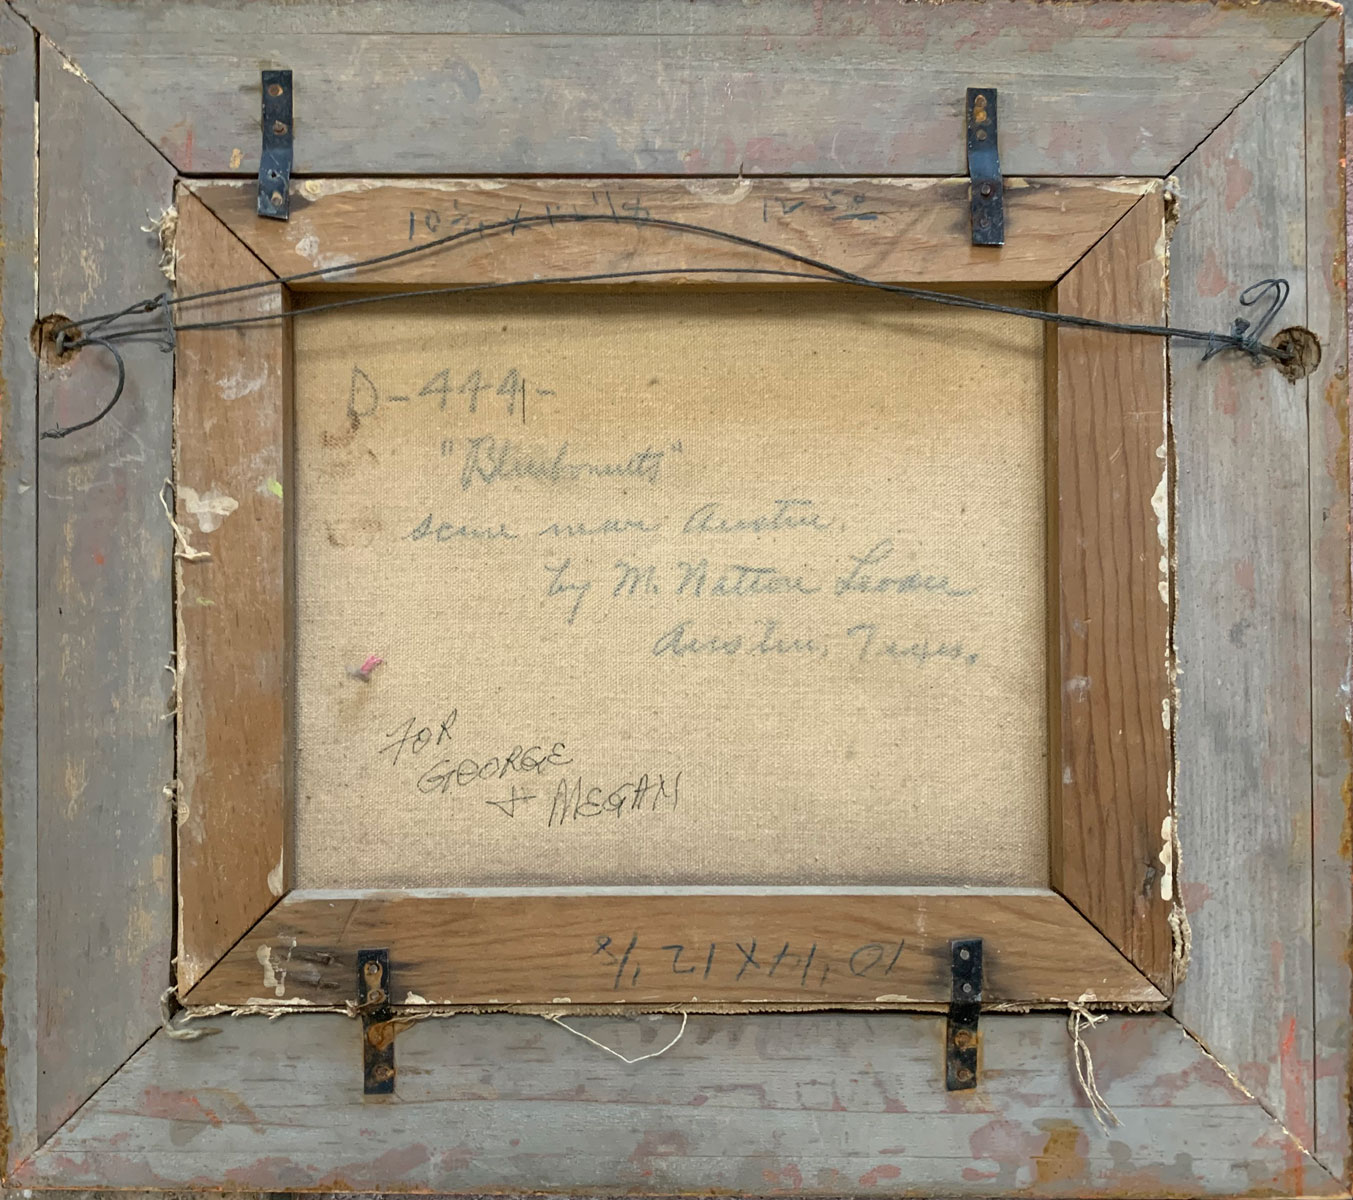 12 50
D-444-
"Bluebonnets"
scene near Austin,
by M. Natton
Austin, Texas.
FOR
GEORGE
+ MEGAN
10 1/4 X 12 1/8